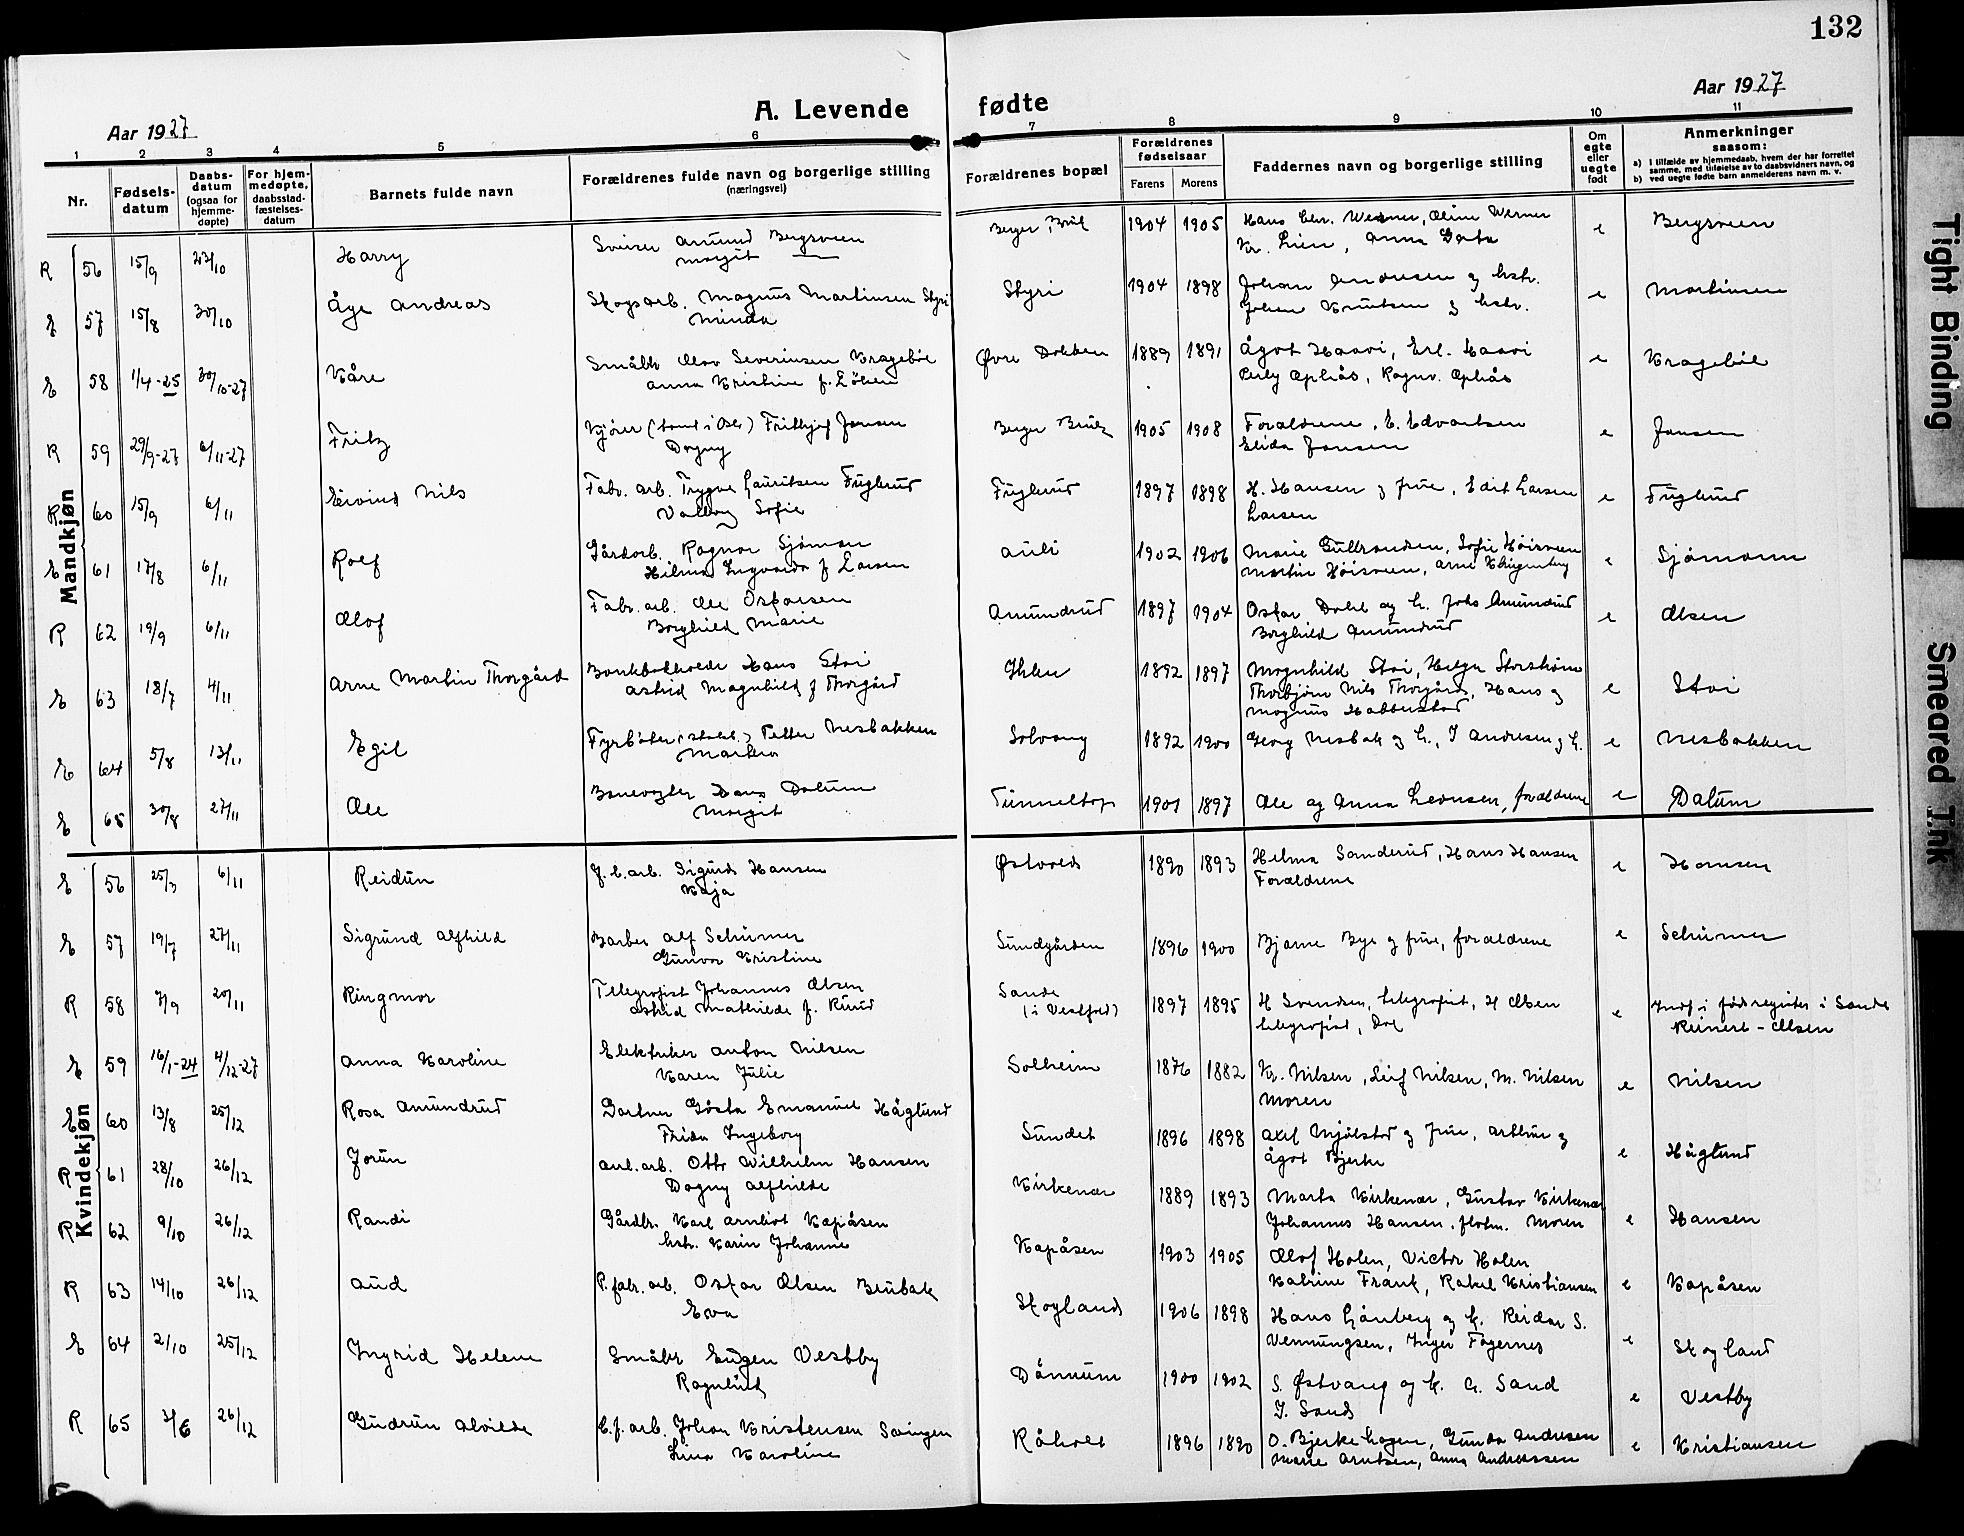 132
Aar 1927
A. Levende fødte
Aar 1927
1 2 3 4 5 6 7 8 9 10 11
Nr.
Fødsels-
datum
Daabs-
datum
(ogsaa for
hjemme-
døpte)
For hjem-
medøpte,
daabsstad-
fæstelses-
datum
Barnets fulde navn
Forældrenes fulde navn og borgerlige stilling
(næringsvei)
Forældrenes bopæl
Forældrenes
fødselsaar
Farens Morens
Faddernes navn og borgerlige stilling
Om
egte
eller
uegte
født
Anmerkninger
saasom:
a) I tilfælde av hjemmedaab, hvem der har forrettet
samme, med tilføielse av to daabsvidners navn, og
b) ved uegte fødte barn anmelderens navn m. v.
Mandkjøn
R 56 15/9 23/10 Harry Sveiser Amund Bergsveen Berger Bruk 1904 1905 Hans Chr. Werner, Oline Werner e Bergsveen
Margit Kr. Lien, Anna
E 57 15/8 30/10 Åge Andreas Skogsarb. Magnus Martinsen Styri Styri 1904 1898 Johan Andresen og hstr. e Martinsen
Minda Johan Knutsen og hstr.
E 58 1/4-25 30/10-27 Kåre Småbr. Olav Severinsen Kragebøl Øvre Dokken 1889 1891 Ågot Haavi, Erl. Haavi e Kragebøl
Anna Kristine f. Løken Perly Ophås, Ragnv. Ophås
R 59 29/9-27 6/11-27 Fritz Kjører (tomt i Oslo) Frithjof Jansen Berger Bruk 1905 1908 Forældrene, E. Edvartsen e Jansen
Dagny Elida Jansen
R 60 15/9 6/11 Eivind Nils Fabr. arb. Trygve Lauritsen Fuglerud Fuglerud 1897 1898 H. Hansen og frue, Edit Larsen e Fuglerud
Valborg Sofie Larsen
E 61 17/8 6/11 Rolf Gårdarb. Ragnar Sjømann Auli 1902 1906 Marie Gulbrandsen, Sofie Høisveen e Sjømann
Hilma Ingvarda f. Larsen Martin Høisveen, Arne Klingenberg
R 62 19/9 6/11 Olof Fabr. arb. Ole Oskarsen Amundrud 1897 1904 Oskar Dahl og h. Johs Amundrud e Olsen
Borghild Marie Borghild Amundrud
E 63 18/7 4/11 Arne Martin Thorgård Bankbokholder Hans Stai 1892 1897 Magnhild Stai, Helga Storstrøm e Stai
Astrid Magnhild f. Thorgård Thorbjørn Nils Thorgård, Hans og
Magnus Habberstad
E 64 5/8 13/11 Egil Fyrbøter (statsb.) Petter Nesbakken Solvang 1892 1900 Georg Nesbak og h., J Andresen og h. e Nesbakken
Martha
E 65 30/8 27/11 Ole Banevogter Hans Dalum Tunneltop 1901 1897 Ole og Anna Leonsen, forældrene e Dalum
Margit
Kvindekjøn
E 56 25/3 6/11 Reidun J.b.arb. Sigurd Hansen Østvold 1890 1893 Helma Sanderud, Hans Hansen e Hansen
Kaja Forældrene
E 57 19/7 27/11 Sigrund Alfhild Barber Alf Schumer Sundgården 1896 1900 Bjarne Bye og frue, forældrene e Schumer
Gunvor Kristine
R 58 7/9 20/11 Ringmor Telegrafist Johannes Olsen Sande 1897 1895 H Svendsen, telegrafist, H Olsen e Indf i fødregister i Sande
Astrid Mathilde f. Ruud (i Vestfold) telegrafist, Do Reinert-Olsen
E 59 16/1-24 4/12-27 Anna Karoline Elektriker Anton Nilsen Solheim 1876 1882 Kr. Nilsen, Leif Nilsen, M. Nilsen e Nilsen
Karen Julie Moren
E 60 13/8 25/12 Rosa Amundrud Gartner Gösta Emanuel Håglund Sundet 1896 1898 Axel Mjølstad og frue, Arthur og e Håglund
Frida Ingeborg Ågot Bjerke
R 61 28/10 26/12 Jorun anl. arb. Otto Wilhelm Hansen Kirkenær 1889 1893 Marta Kirkenær, Gustav Kirkenær e Hansen
Dagny Alfhilde Johannes Hansen, flotm. Moren
R 62 9/10 26/12 Randi Gårdbr. Karl Arnliot Kapåsen Kapåsen 1903 1905 Olof Holen, Victor Holen e Kapåsen
hstr. Karin Johanne Katrine Frank, Rakel Kristiansen
R 63 14/10 26/12 Aud P. fabr. arb. Oskar Olsen Brubak Skogland 1906 1898 Hans Grønberg og h. Reidar S. e Skogland
Eva Vennungsen, Inger Fagernes
E 64 2/10 25/12 Ingrid Helene Småbr Eugen Vestby Dånnum 1900 1902 S. Østvang og h. A. Sand e Vestby
Ragnhild J. Sand
R 65 3/6 26/12 Gudrun Alvilde C.f. arb. Johan Kristensen Svingen Råholt 1896 1890 O. Bjerkehagen, Gunda Andresen e Kristiansen
Lina Karoline Marie Arntsen, Anna Andreassen
Tight Binding
Smeared Ink